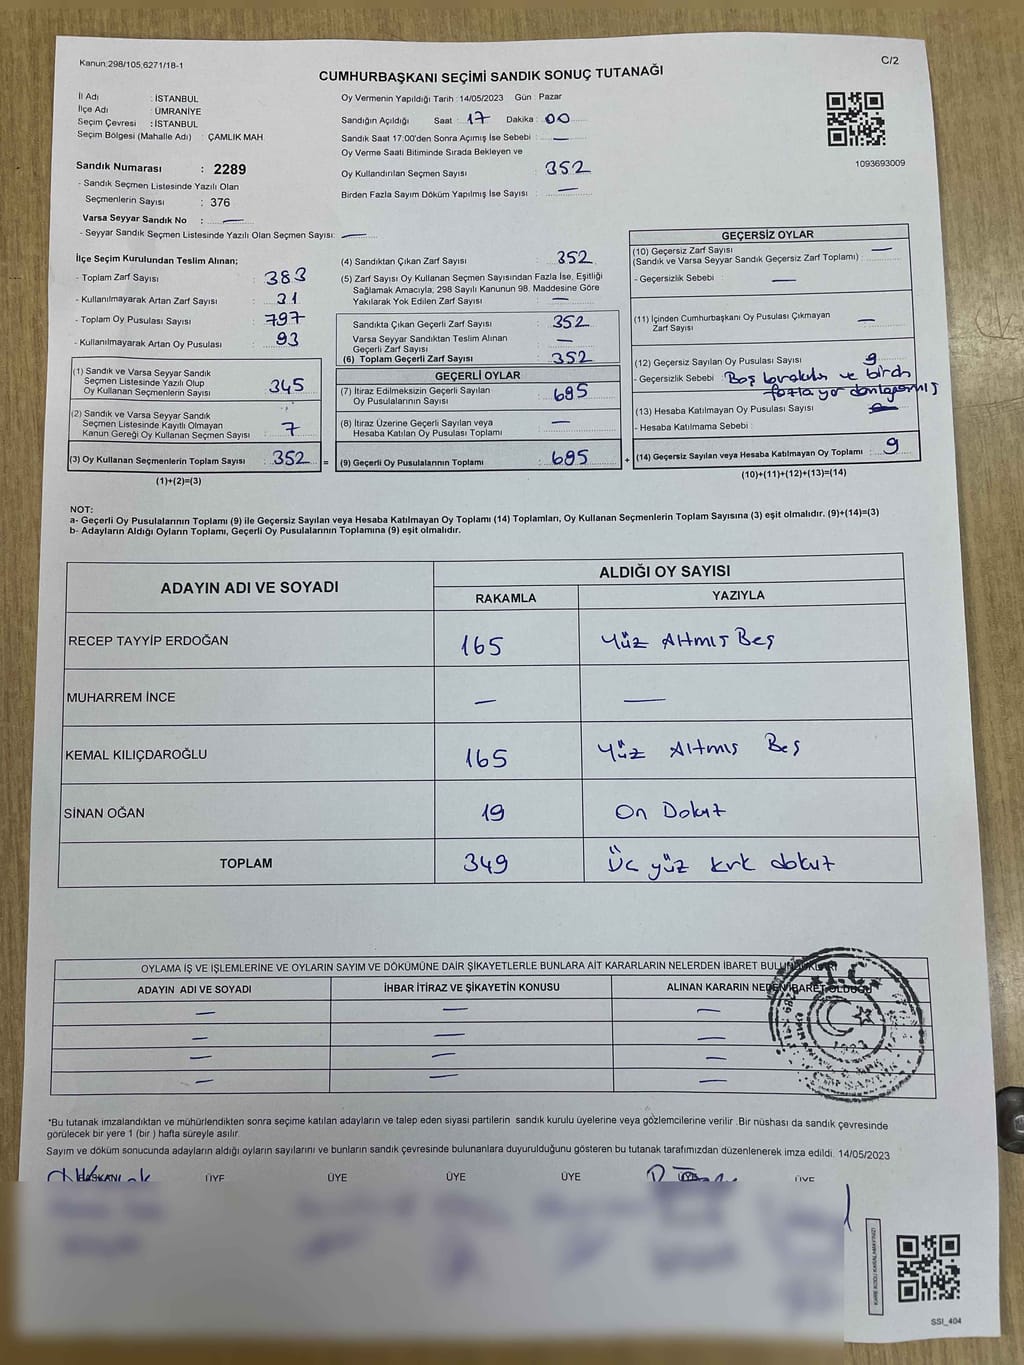 Kanun:298/105,6271/18-1
C/2
CUMHURBAŞKANI SEÇİMİ SANDIK SONUÇ TUTANAĞI
İl Adı : İSTANBUL
İlçe Adı : ÜMRANİYE
Seçim Çevresi : İSTANBUL
Seçim Bölgesi (Mahalle Adı) : ÇAMLIK MAH.
Sandık Numarası : 2289
- Sandık Seçmen Listesinde Yazılı Olan
Seçmenlerin Sayısı : 376
Varsa Seyyar Sandık No : —
- Seyyar Sandık Seçmen Listesinde Yazılı Olan Seçmen Sayısı: —
Oy Vermenin Yapıldığı Tarih :14/05/2023 Gün : Pazar
Sandığın Açıldığı Saat : 17 Dakika : 00
Sandık Saat 17:00'den Sonra Açımış İse Sebebi : —
Oy Verme Saati Bitiminde Sırada Bekleyen ve
Oy Kullandırılan Seçmen Sayısı : 352
Birden Fazla Sayım Döküm Yapılmış İse Sayısı : —
1093693009
İlçe Seçim Kurulundan Teslim Alınan;
- Toplam Zarf Sayısı : 383
- Kullanılmayarak Artan Zarf Sayısı : 31
- Toplam Oy Pusulası Sayısı : 797
- Kullanılmayarak Artan Oy Pusulası : 93
(1) Sandık ve Varsa Seyyar Sandık
Seçmen Listesinde Yazılı Olup
Oy Kullanan Seçmenlerin Sayısı : 345
(2) Sandık ve Varsa Seyyar Sandık
Seçmen Listesinde Kayıtlı Olmayan
Kanun Gereği Oy Kullanan Seçmen Sayısı : 7
(3) Oy Kullanan Seçmenlerin Toplam Sayısı : 352 =
(1)+(2)=(3)
(4) Sandıktan Çıkan Zarf Sayısı : 352
(5) Zarf Sayısı Oy Kullanan Seçmen Sayısından Fazla İse, Eşitliği
Sağlamak Amacıyla, 298 Sayılı Kanunun 98. Maddesine Göre
Yakılarak Yok Edilen Zarf Sayısı : —
Sandıkta Çıkan Geçerli Zarf Sayısı : 352
Varsa Seyyar Sandıktan Teslim Alınan
Geçerli Zarf Sayısı : —
(6) Toplam Geçerli Zarf Sayısı : 352
GEÇERLİ OYLAR
(7) İtiraz Edilmeksizin Geçerli Sayılan
Oy Pusulalarının Sayısı : 695
(8) İtiraz Üzerine Geçerli Sayılan veya
Hesaba Katılan Oy Pusulası Toplamı : —
(9) Geçerli Oy Pusulalarının Toplamı : 695 +
GEÇERSİZ OYLAR
(10) Geçersiz Zarf Sayısı
(Sandık ve Varsa Seyyar Sandık Geçersiz Zarf Toplamı) : —
- Geçersizlik Sebebi : —
(11) İçinden Cumhurbaşkanı Oy Pusulası Çıkmayan
Zarf Sayısı : —
(12) Geçersiz Sayılan Oy Pusulası Sayısı : 9
- Geçersizlik Sebebi : Boş ve birden
fazla
(13) Hesaba Katılmayan Oy Pusulası Sayısı :
- Hesaba Katılmama Sebebi :
(14) Geçersiz Sayılan veya Hesaba Katılmayan Oy Toplamı : 9
(10)+(11)+(12)+(13)=(14)
NOT:
a- Geçerli Oy Pusulalarının Toplamı (9) ile Geçersiz Sayılan veya Hesaba Katılmayan Oy Toplamı (14) Toplamları, Oy Kullanan Seçmenlerin Toplam Sayısına (3) eşit olmalıdır. (9)+(14)=(3)
b- Adayların Aldığı Oyların Toplamı, Geçerli Oy Pusulalarının Toplamına (9) eşit olmalıdır.
ADAYIN ADI VE SOYADI
ALDIĞI OY SAYISI
RAKAMLA YAZIYLA
RECEP TAYYİP ERDOĞAN 165 Yüz Altmış Beş
MUHARREM İNCE — —
KEMAL KILIÇDAROĞLU 165 Yüz Altmış Beş
SİNAN OĞAN 19 On Dokuz
TOPLAM 349 Üç yüz kırk dokuz
OYLAMA İŞ VE İŞLEMLERİNE VE OYLARIN SAYIM VE DÖKÜMÜNE DAİR ŞİKAYETLERLE BUNLARA AİT KARARLARIN NELERDEN İBARET BULUNDUKLARI
ADAYIN ADI VE SOYADI İHBAR İTİRAZ VE ŞİKAYETİN KONUSU ALINAN KARARIN NEDEN İBARET OLDUĞU
— — —
— — —
— — —
— — —
T.C.
1923
*Bu tutanak imzalandıktan ve mühürlendikten sonra seçime katılan adayların ve talep eden siyasi partilerin sandık kurulu üyelerine veya gözlemcilerine verilir .Bir nüshası da sandık çevresinde
görülecek bir yere 1 (bir ) hafta süreyle asılır.
Sayım ve döküm sonucunda adayların aldığı oyların sayılarını ve bunların sandık çevresinde bulunanlara duyurulduğunu gösteren bu tutanak tarafımızdan düzenlenerek imza edildi. 14/05/2023
BAŞKANI ÜYE ÜYE ÜYE ÜYE ÜYE ÜYE
KARE KODU KARALAMAYINIZ!
SSI_404